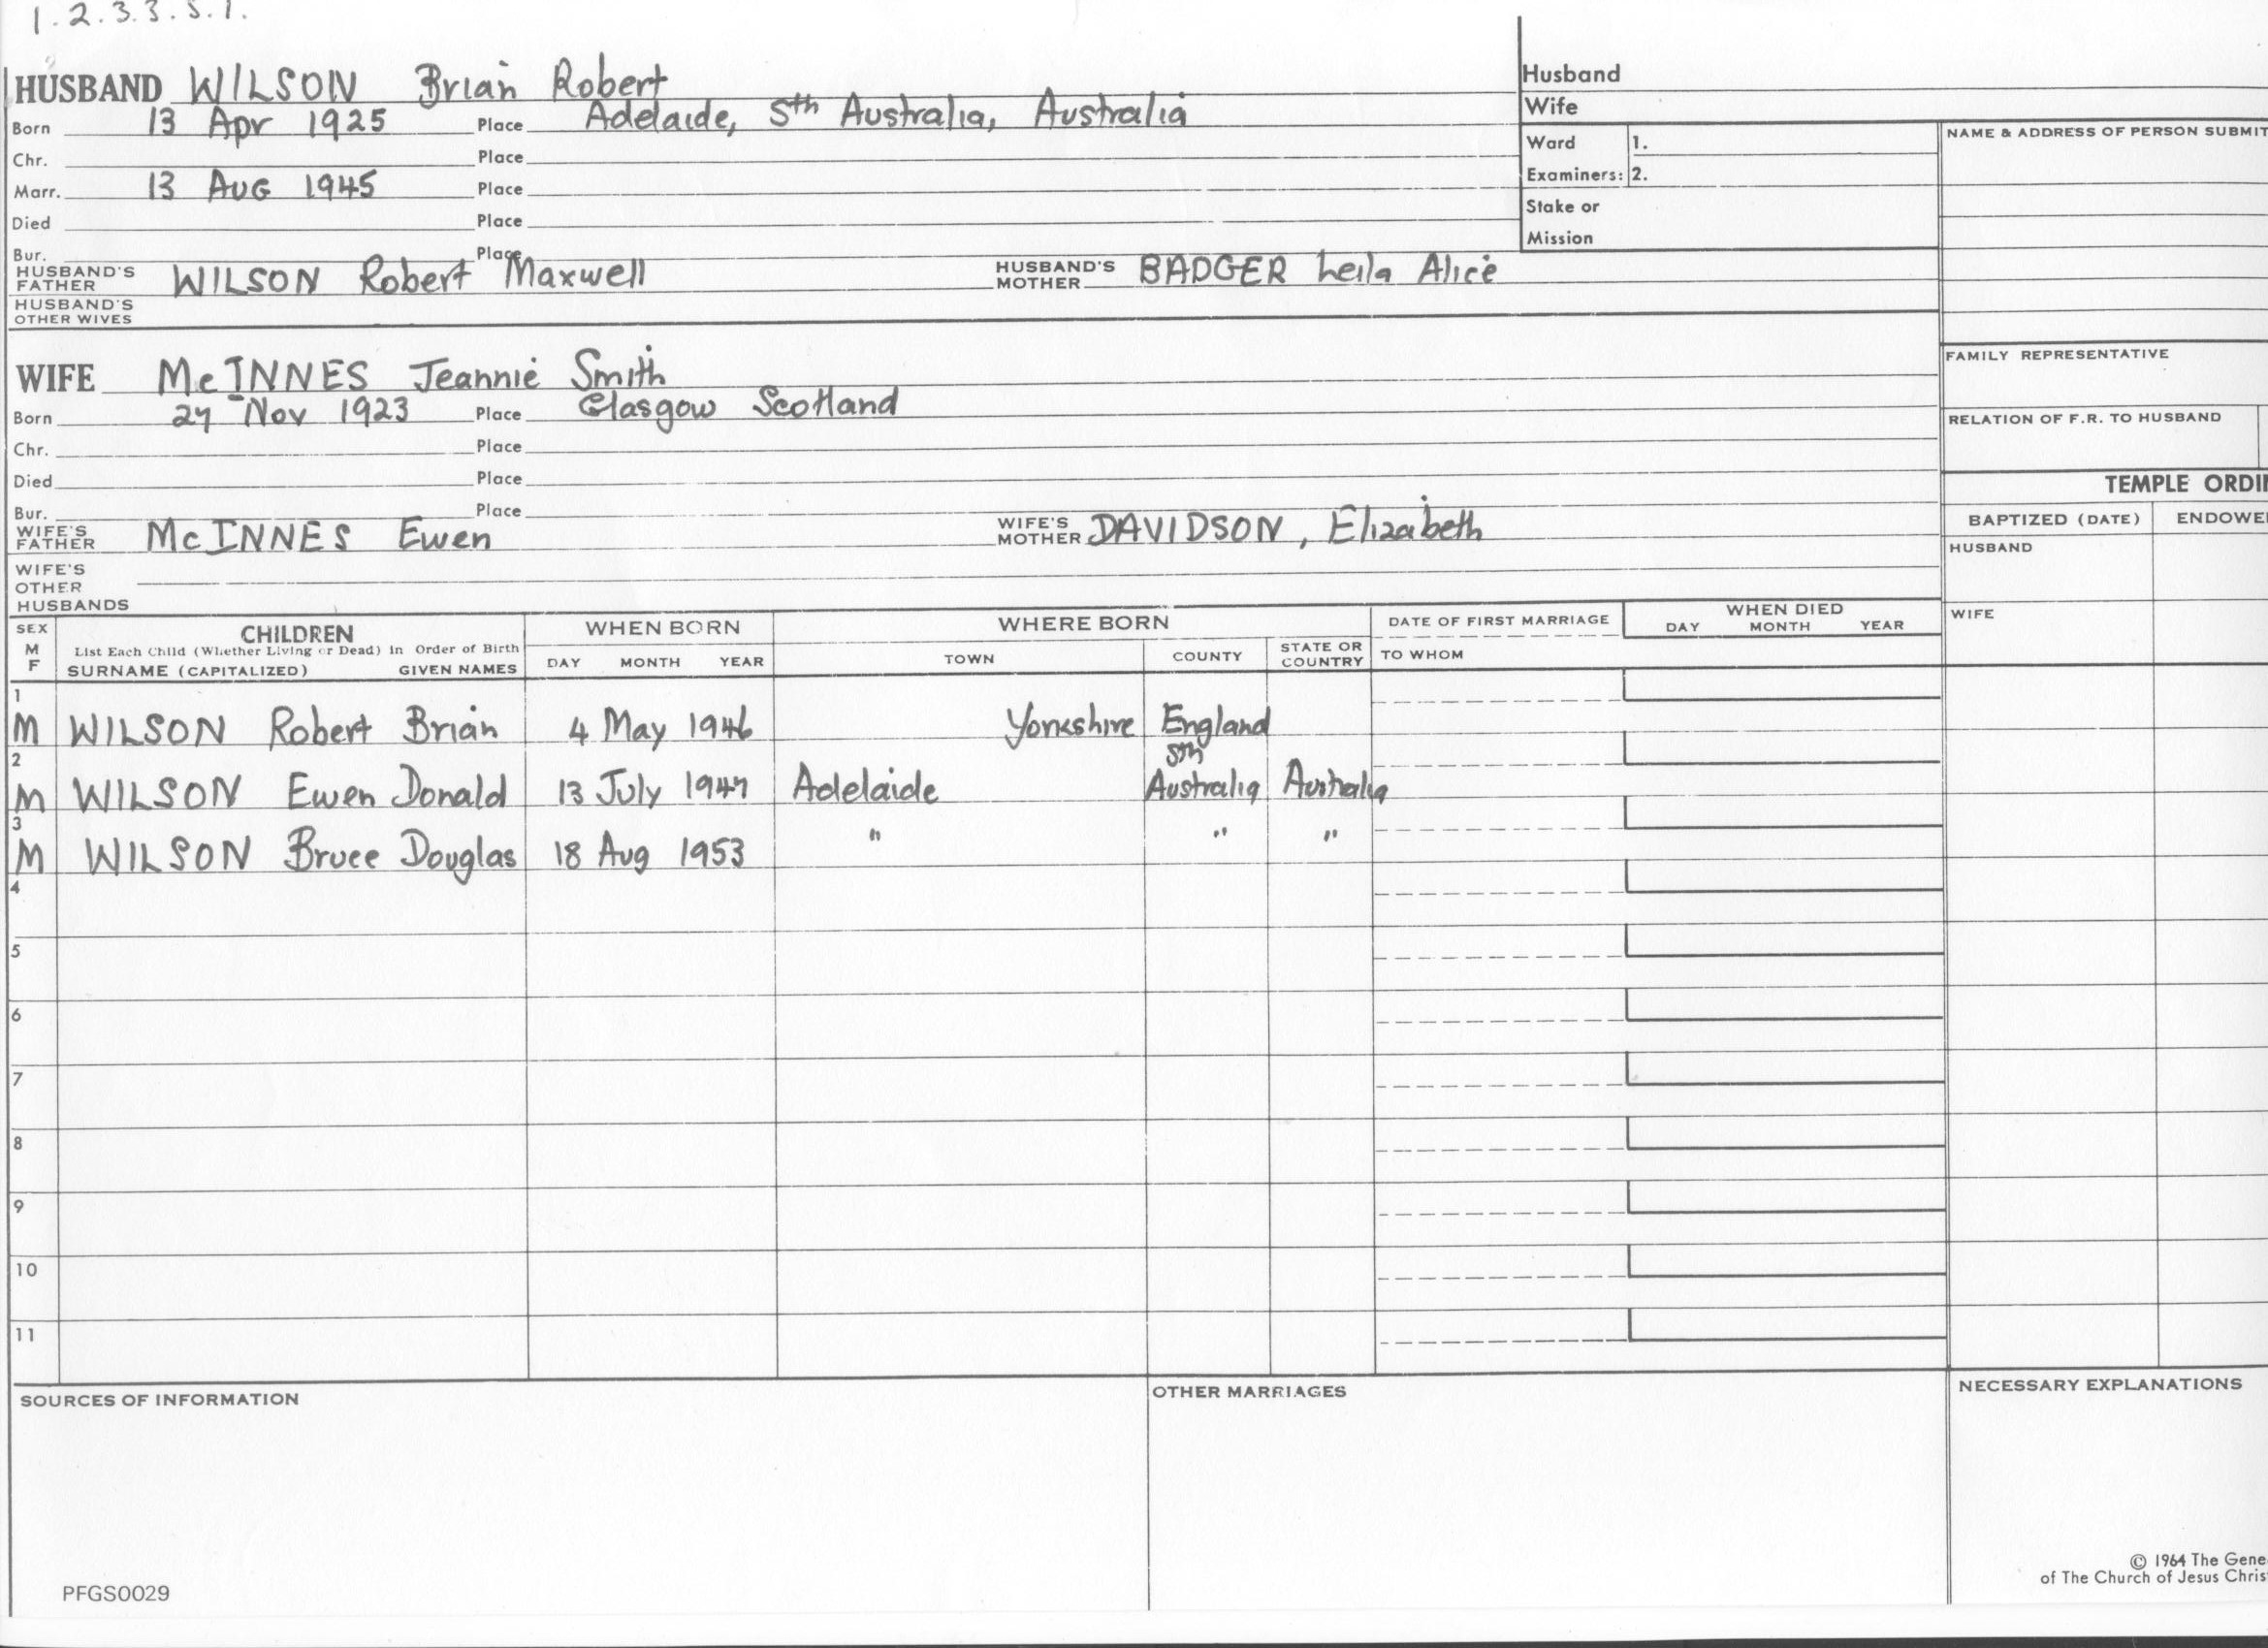 1.2.3.3.5.1.
HUSBAND WILSON Brian Robert
Born 13 Apr 1925 Place Adelaide, Sth Australia, Australia
Chr. Place
Marr. 13 AUG 1945 Place
Died Place
Bur. Place
HUSBAND'S FATHER WILSON Robert Maxwell HUSBAND'S MOTHER BADGER Leila Alice
HUSBAND'S OTHER WIVES
Husband
Wife
Ward 1.
Examiners: 2.
Stake or
Mission
NAME & ADDRESS OF PERSON SUBMIT
WIFE McINNES Jeannie Smith
Born 27 Nov 1923 Place Glasgow Scotland
Chr. Place
Died Place
Bur. Place
WIFE'S FATHER McINNES Ewen WIFE'S MOTHER DAVIDSON, Elizabeth
WIFE'S
OTHER
HUSBANDS
FAMILY REPRESENTATIVE
RELATION OF F.R. TO HUSBAND
TEMPLE ORDI
BAPTIZED (DATE) ENDOWE
HUSBAND
WIFE
SEX M F
CHILDREN
List Each Child (Whether Living or Dead) in Order of Birth
SURNAME (CAPITALIZED) GIVEN NAMES
WHEN BORN
DAY MONTH YEAR
WHERE BORN
TOWN COUNTY STATE OR COUNTRY
DATE OF FIRST MARRIAGE
TO WHOM
WHEN DIED
DAY MONTH YEAR
1
M WILSON Robert Brian 4 May 1946 Yorkshire England
2
M WILSON Ewen Donald 13 July 1947 Adelaide Sth Australia Australia
3
M WILSON Bruce Douglas 18 Aug 1953 " " "
4
5
6
7
8
9
10
11
SOURCES OF INFORMATION
OTHER MARRIAGES
NECESSARY EXPLANATIONS
PFGS0029
© 1964 The Gene
of The Church of Jesus Chris